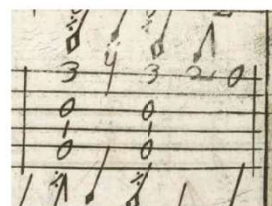 3 4 3 2 0
0 0
1 1
0 0